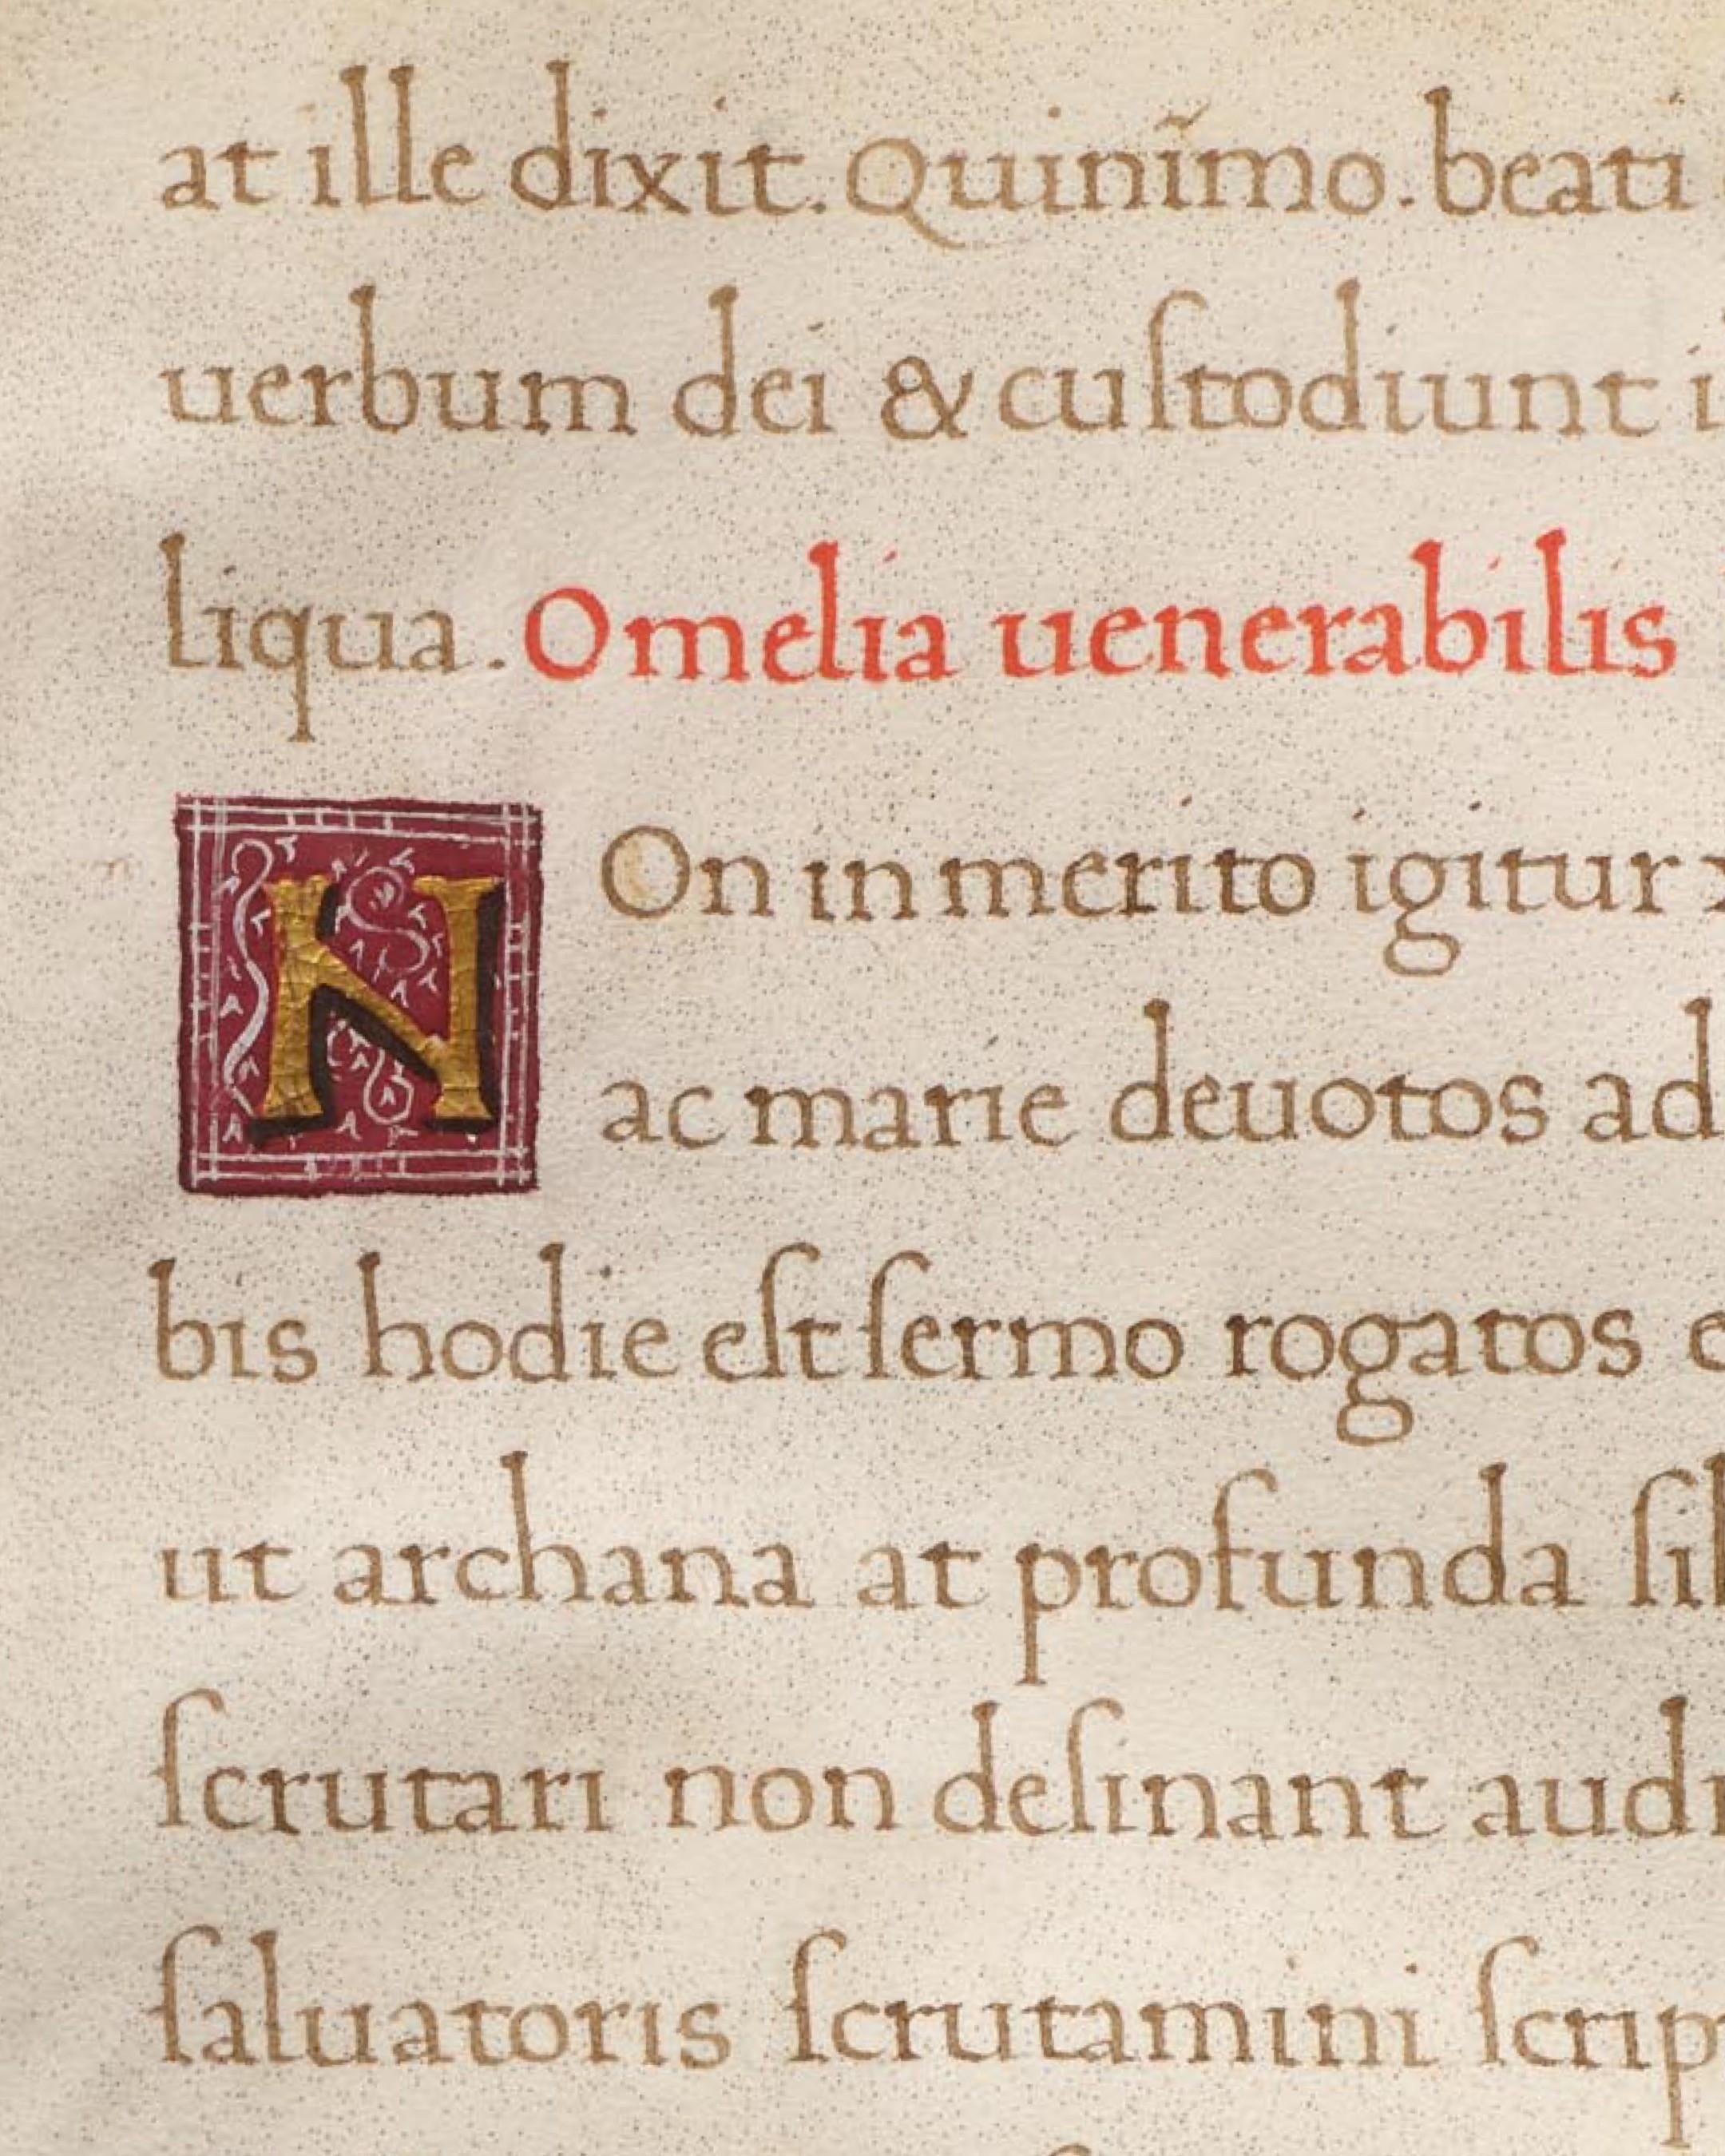 at ille dixit. Quinĩmo. beati
uerbum dei & cuſtodiunt i
liqua. Omelia uenerabilis
NOn inmerito igitur
ac marie deuotos ad
bis hodie eſt ſermo rogatos
ut archana at profunda ſil
ſcrutari non deſinant audi
ſaluatoris ſcrutamini ſcrip